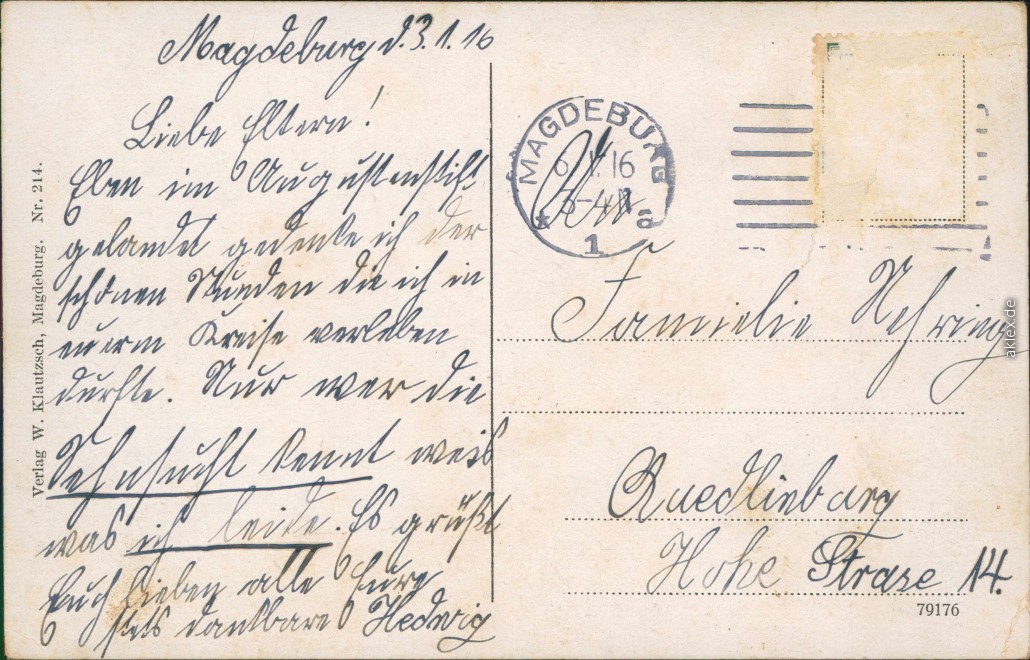 Magdeburg d. 3.1.16
Liebe Eltern!
Eben im Augustenstift
gelandet gedenke ich der
schönen Stunden die ich in
eurem Kreise verleben
durfte. Nur wer die
Sehnsucht kennt weis
was ich leide. Es grüßt
Euch lieben alle Eure
stets dankbare Hedwig
Verlag W. Klautzsch, Magdeburg. Nr. 214.
MAGDEBURG
6.1.16
3-4N
* 1 a
An
Familie Nehring
Quedlinburg
Hohe Strase 14.
79176
aklex.de